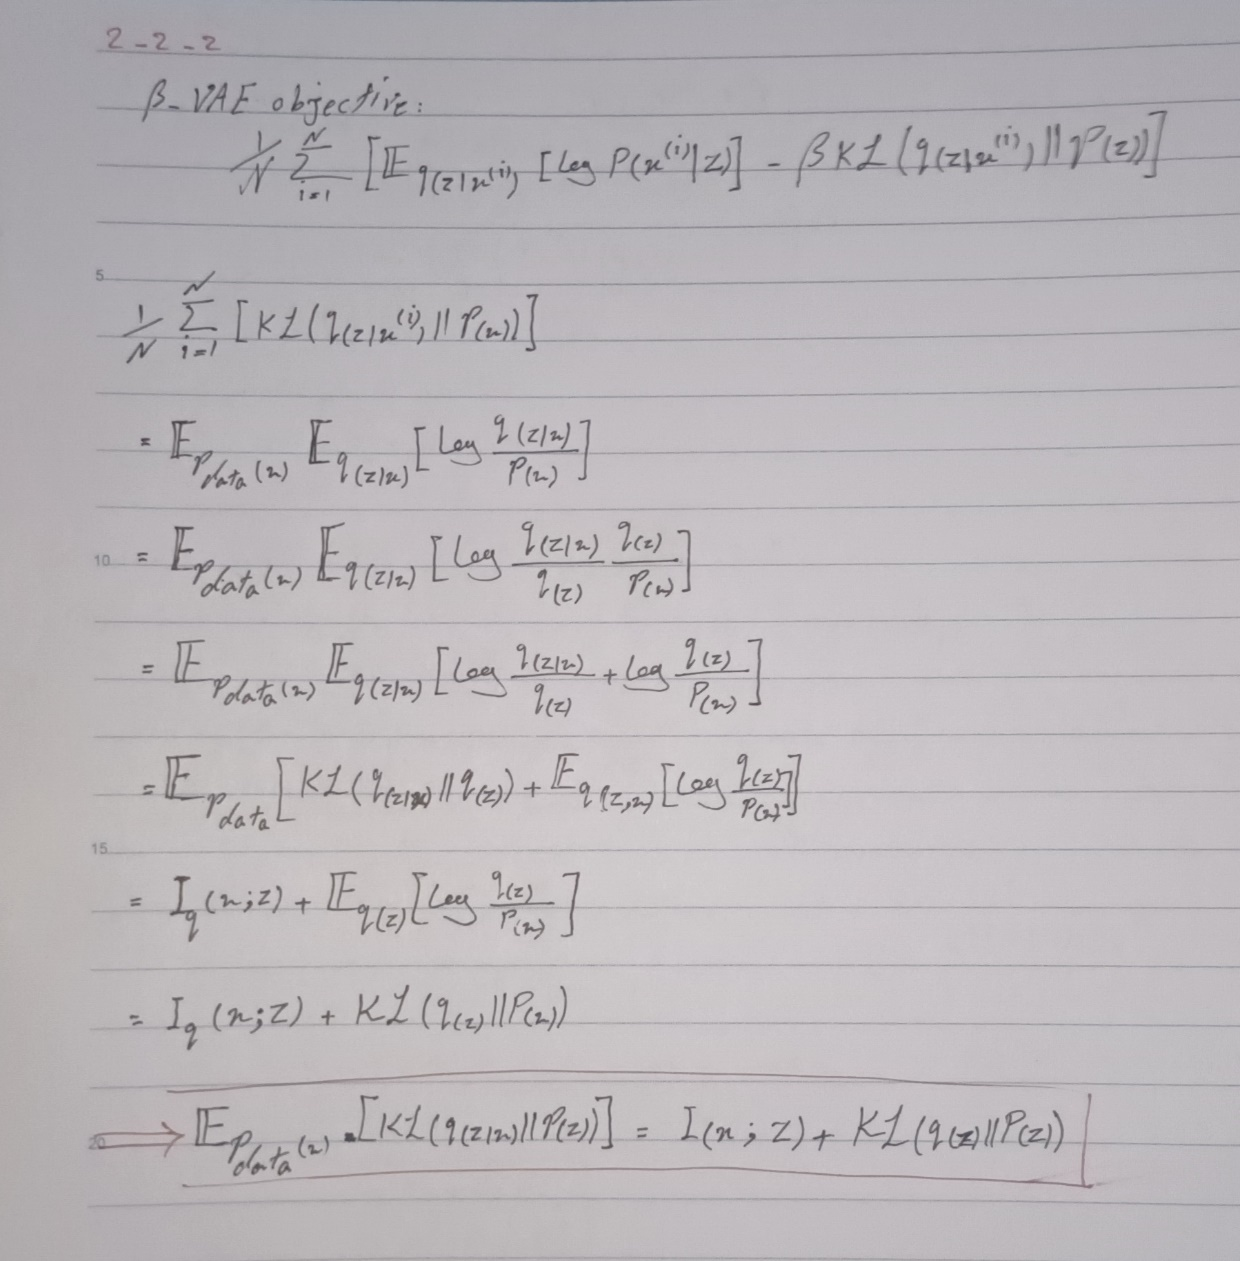 2-2-2
β-VAE objective:
1/N Σ_{i=1}^{N} [𝔼_{q(z|x^{(i)})} [log P(x^{(i)}|z)] - β KL(q(z|x^{(i)}) || P(z))]
5
1/N Σ_{i=1}^{N} [KL(q(z|x^{(i)}) || P(x))]
= 𝔼_{P_{data}(x)} 𝔼_{q(z|x)} [log q(z|x)/P(x)]
10 = 𝔼_{P_{data}(x)} 𝔼_{q(z|x)} [log q(z|x)/q(z) q(z)/P(x)]
= 𝔼_{P_{data}(x)} 𝔼_{q(z|x)} [log q(z|x)/q(z) + log q(z)/P(x)]
= 𝔼_{P_{data}} [KL(q(z|x) || q(z)) + 𝔼_{q(z,x)} [log q(z)/P(x)]]
15
= I_q(x;z) + 𝔼_{q(z)} [log q(z)/P(x)]
= I_q(x;z) + KL(q(z) || P(x))
20 ⟹ 𝔼_{P_{data}(x)} [KL(q(z|x) || P(z))] = I(x;z) + KL(q(z) || P(z))